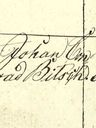 Johan Con
rad Bitsch